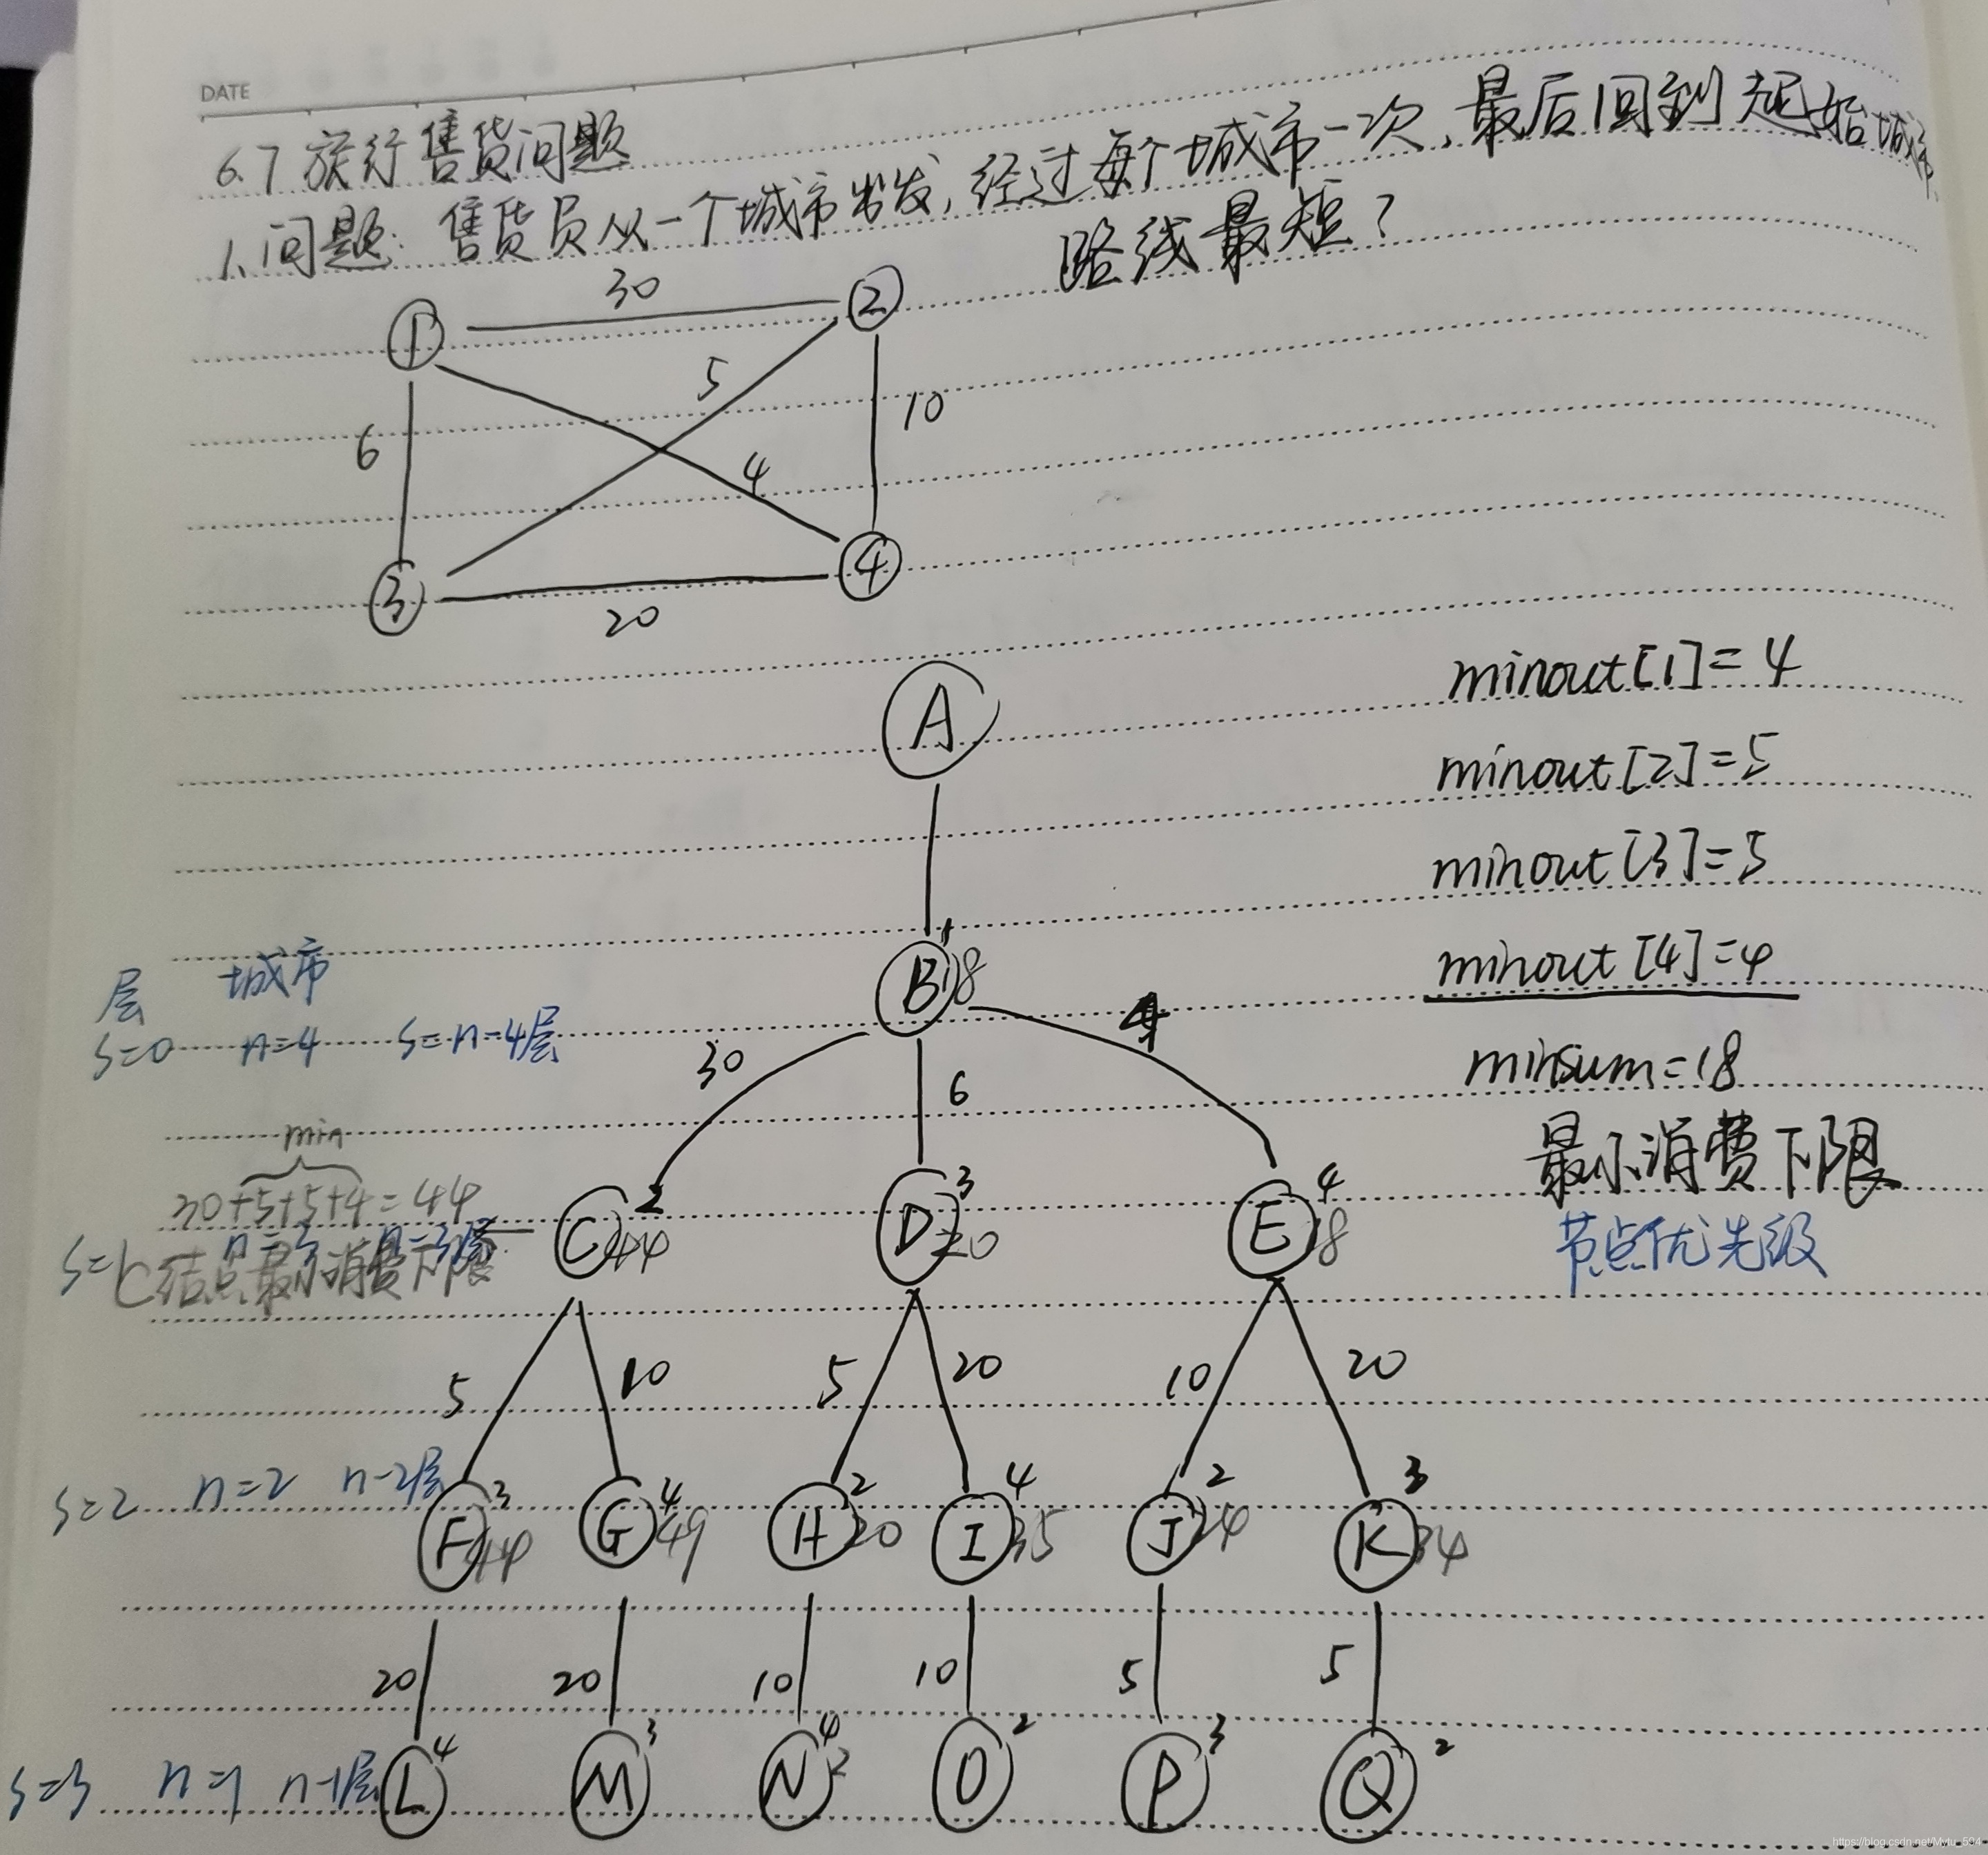 DATE
6.7 旅行售货问题
1、问题: 售货员从一个城市出发, 经过每个城市一次, 最后回到起始城市,
路线最短?
30
1 2
5
6 10
4
3 4
20
A
minout[1]=4
minout[2]=5
minout[3]=5
minout[4]=4
minsum=18
最小消费下限
节点优先级
层 城市
1
B 18
s=0 n=4 s=n-4层
30 6 4
min
30+5+5+4=44
2 3 4
C 44 D 20 E 18
s=1 n=3 n-3层
C结点最小消费下限
5 10 5 20 10 20
s=2 n=2 n-2层
3 4 2 4 2 3
F 44 G 49 H 20 I 35 J 24 K 34
20 20 10 10 5 5
4 3 4 2 3 2
s=3 n=1 n-1层
L M N O P Q
https://blog.csdn.net/Mytu_504